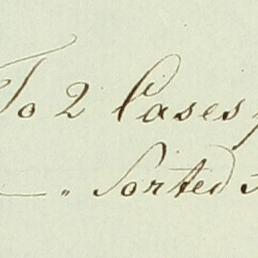 To 2 Cases
— " Sorted